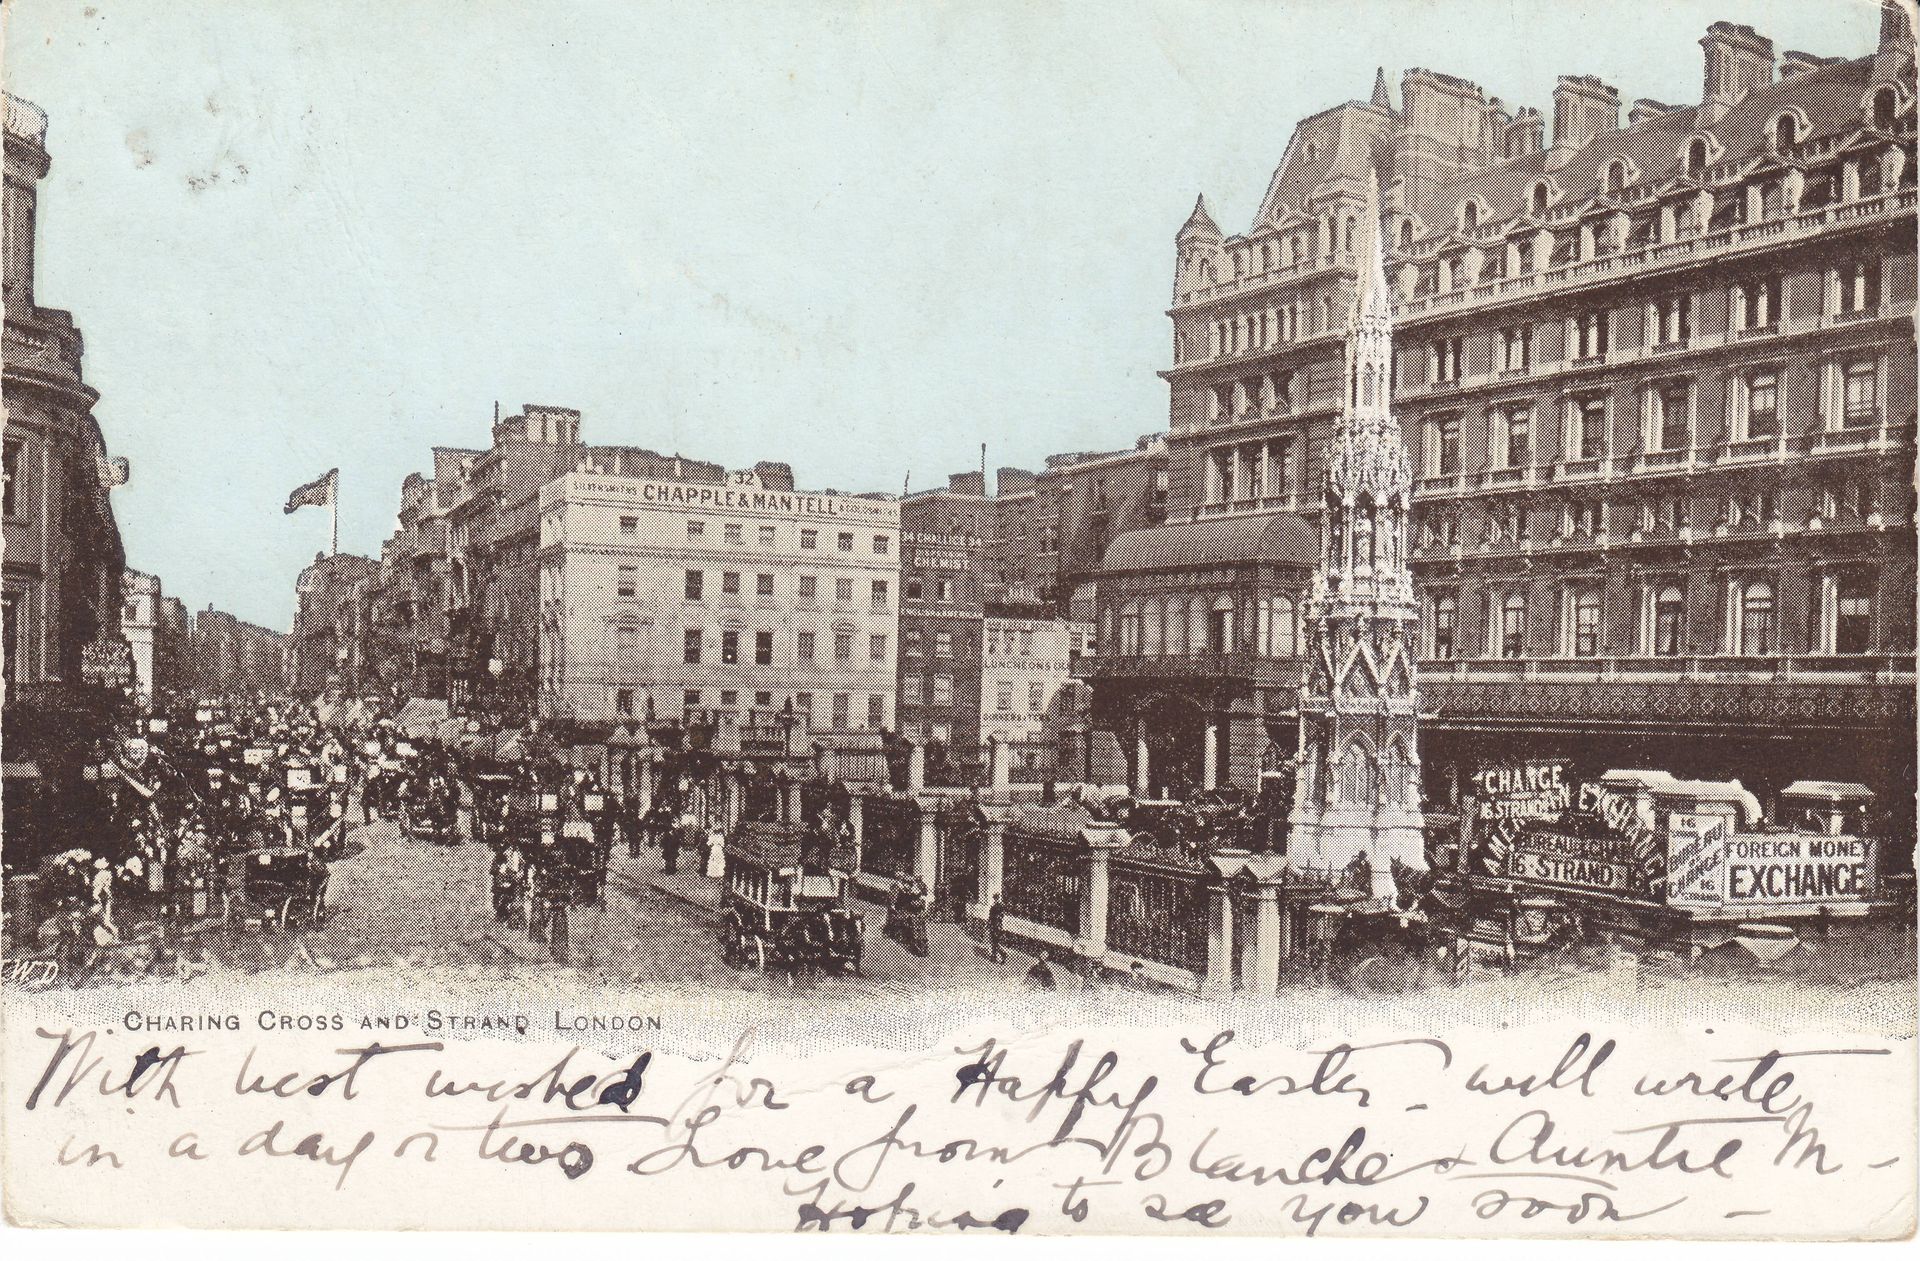 32
SILVERSMITHS CHAPPLE & MANTELL & GOLDSMITHS
34 CHALLICE 34
CHEMIST
LUNCHEONS
DINNERS & TEAS
CHANGE
16 STRAND
EXCHANGE
BUREAU DE CHANGE
16 STRAND 16
16
BUREAU
DE
CHANGE
16
STRAND
FOREIGN MONEY
EXCHANGE
WD
CHARING CROSS AND STRAND LONDON
With best wishes for a Happy Easter - will write
in a day or two Love from Blanche & Auntie M -
Hoping to see you soon -